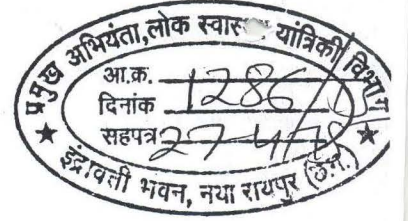 प्रमुख अभियंता,लोक स्वास यांत्रिकी विभाग
आ.क्र.
दिनांक 1286/
सहपत्र 27-4-
इंद्रावती भवन, नया रायपुर (छ.ग.)